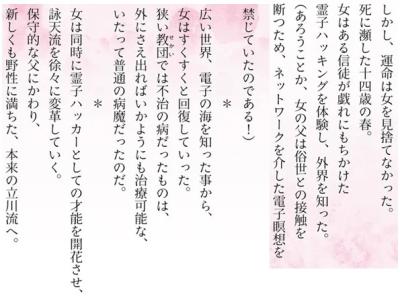 しかし、運命は女を見捨てなかった。
死に瀕した十四歳の春。
女はある信徒が戯れにもちかけた
霊子ハッキングを体験し、外界を知った。
（あろうことか、女の父は俗世との接触を
断つため、ネットワークを介した電子瞑想を
禁じていたのである！）
＊
広い世界、電子の海を知った事から、
女はすくすくと回復していった。
狭い教団では不治の病だったものは、
せかい
外にさえ出ればいかようにも治療可能な、
いたって普通の病魔だったのだ。
＊
女は同時に霊子ハッカーとしての才能を開花させ、
詠天流を徐々に変革していく。
保守的な父にかわり、
新しくも野性に満ちた、本来の立川流へ。